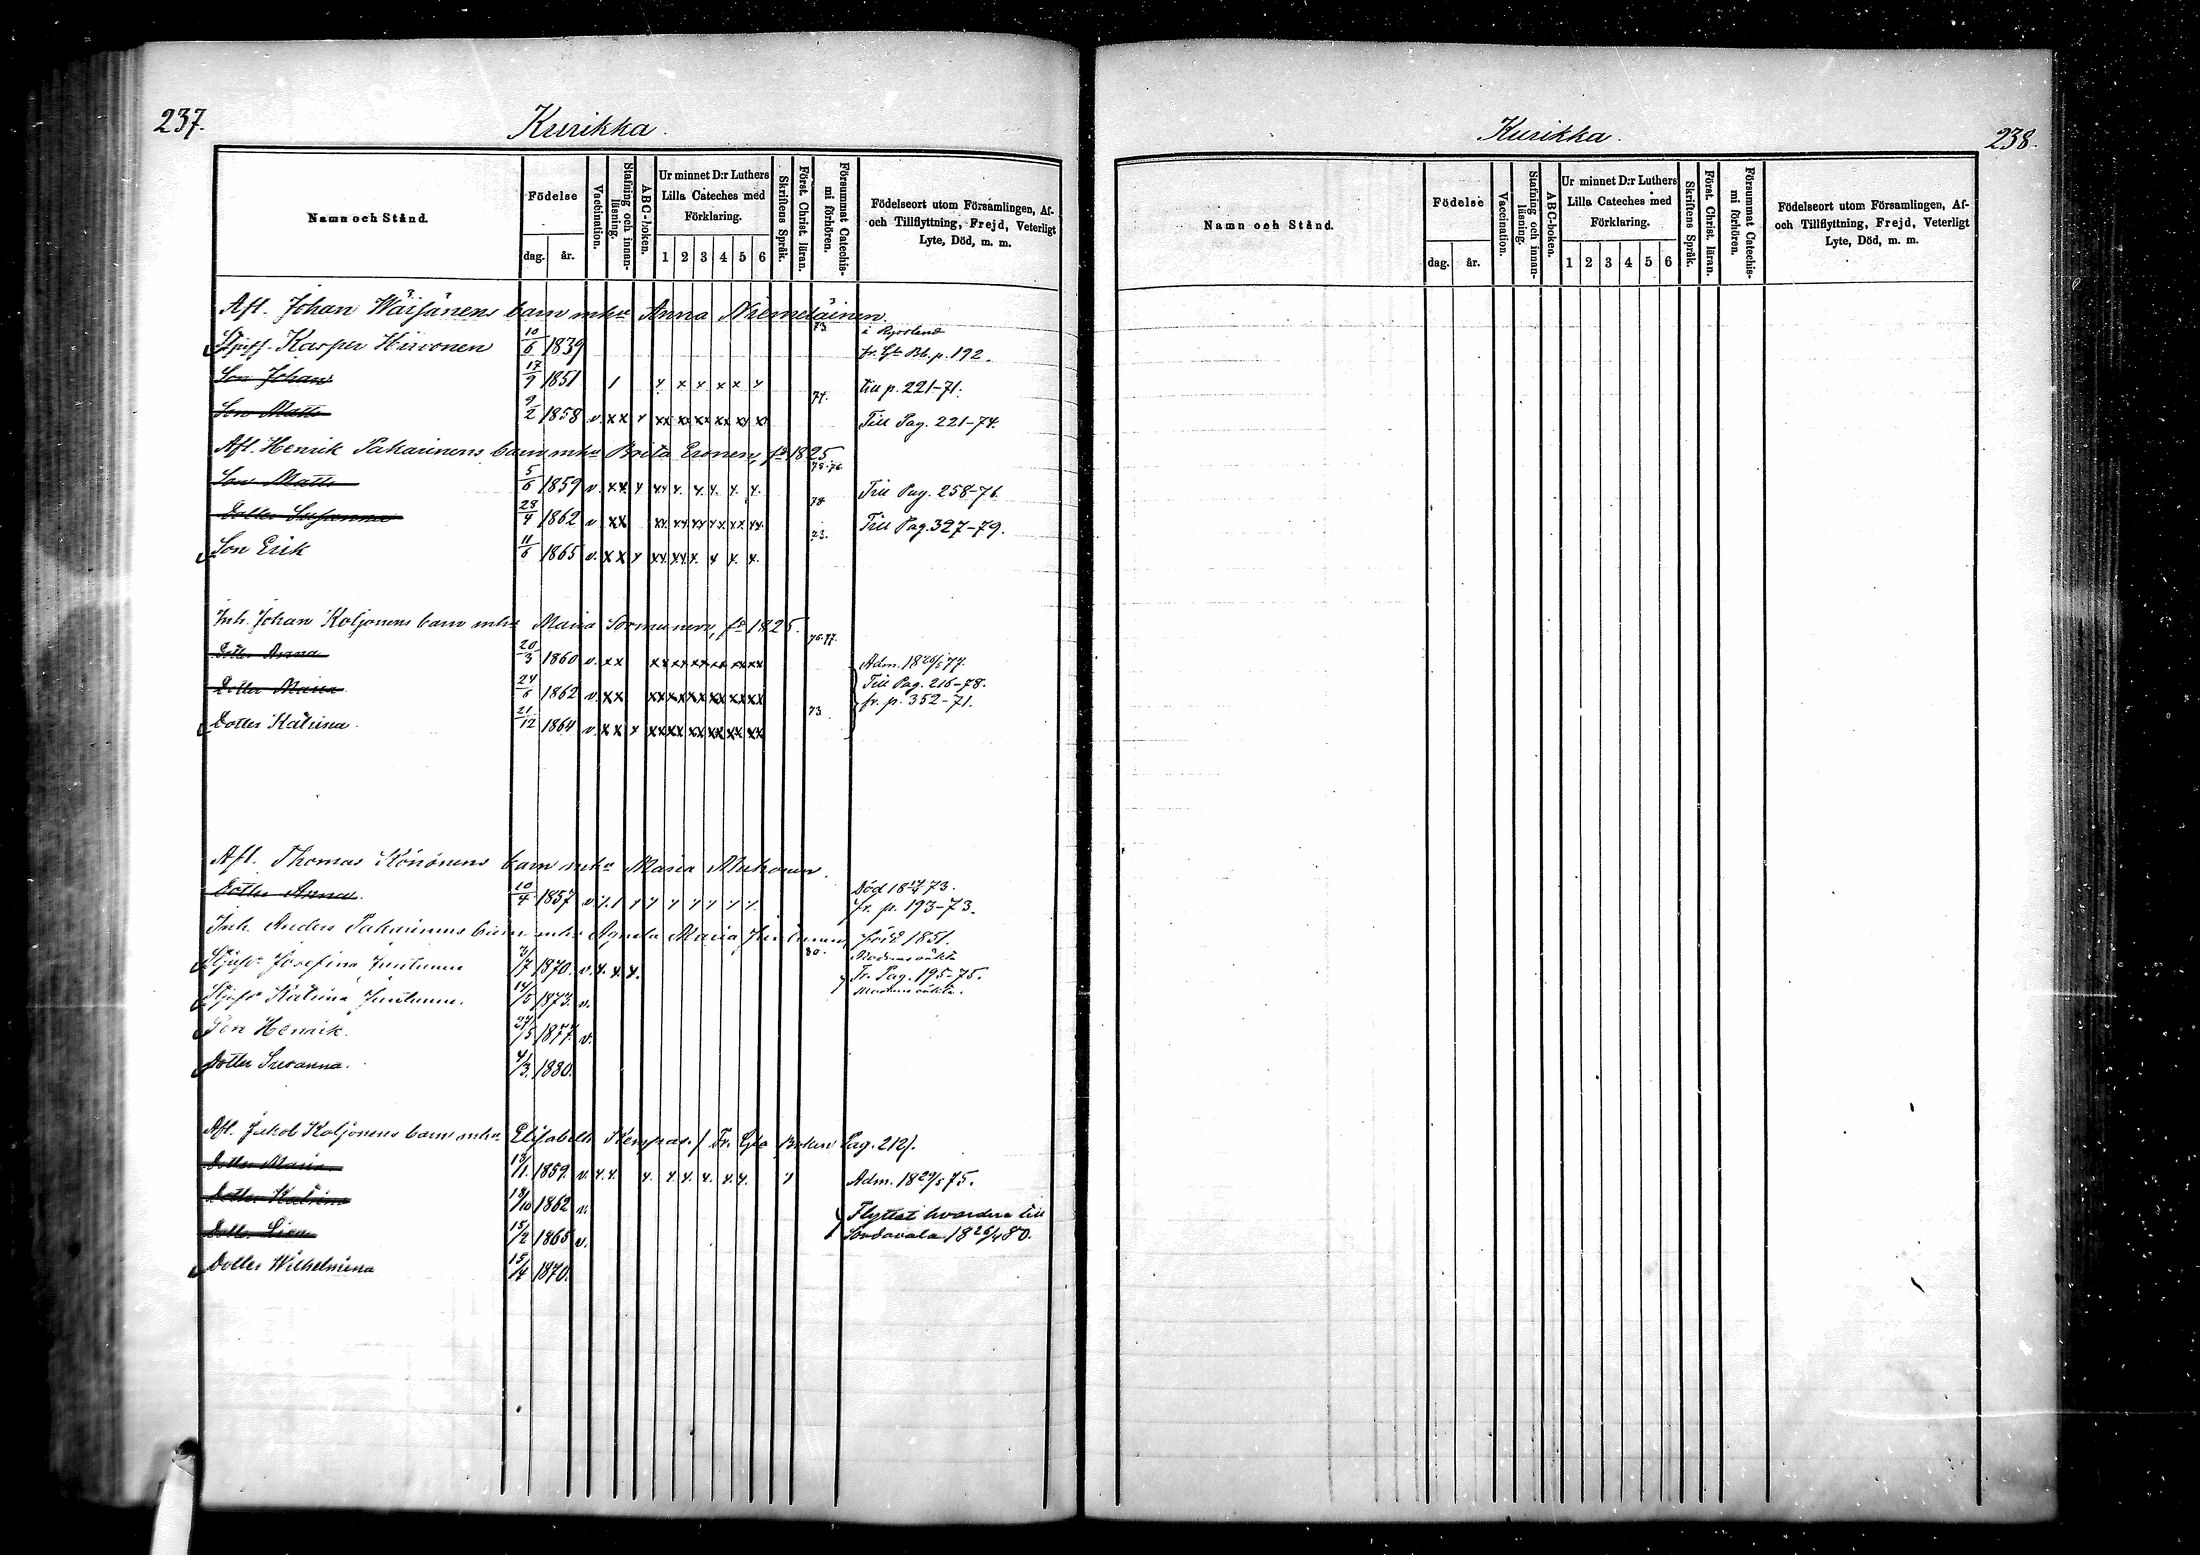 237.
Kurikka.
Namn och Stånd.
Födelse
dag. år.
Vaccination.
Stafning och innan-läsning.
ABC-boken.
Ur minnet D:r Luthers
Lilla Cateches med
Förklaring.
1 2 3 4 5 6
Skriftens Språk.
Först. Christ. läran.
Försummat Catechis-mi förhören.
Födelseort utom Församlingen, Af-
och Tillflyttning, Frejd, Veterligt
Lyte, Död, m. m.
Afl. Johan Wäisänens barn mhu Anna Niemeläinen.
Kasper Hirvonen 10/6 1839 73 i Ryssland
p. 192.
Son Johan 17/9 1851 1 x x x x x x till p. 221-71.
Son Matts 9/2 1858 v. xx x xx xx xx xx xx xx 74. Till Pag. 221-74.
Afl. Henrik Pakarinens barn mhu Brita Eronen, fd 1825
Son Matts 5/6 1859 v. xx x xx x. x. x. x. x. 75-76 Till Pag. 258-76.
Dotter Susanna 28/4 1862 v xx xx xx xx xx xx xx 78 Till Pag. 327-79.
Son Erik 11/6 1865 v. xx x xx xx x. x x. x. 73.
Inh. Johan Koljonens barn mhu Maria Sormunen, fd 1825.
Dotter Anna 20/3 1860 v. xx xx xx xx xx xx xx 76-77. Adm. 18 26/5 77.
Dotter Maria 24/6 1862 v. xx xx xx xx xx xx xx Till Pag. 216-78.
fr. p. 352-71.
Dotter Katrina 21/12 1864 v. xx x xx xx xx xx xx xx 73
Afl. Thomas Könönens barn mhu Maria Muhonen.
Dotter Anna 10/4 1857 v Död 73.
fr. p. 193-73.
Inh. Anders Pakarinens barn mhu Agneta Maria Juntunen, född 1851.
Josefina Juntunen 3/7 1870. v. x. x. x. 80. Modrens oäkta
Fr. Pag. 195-75.
Katrina Juntunen. 14/5 1873. v. Modrens oäkta.
Son Henrik. 27/5 1877. v.
Dotter Susanna. 4/3. 1880.
Afl. Jakob Koljonens barn mhu Elisabeth Kempas. / Fr. Boken Pag. 212/.
Dotter Maria 13/1. 1859. v. x. x. x. x. x. x. x. x. Adm. 18 29/5 75.
Dotter Katrina 18/10 1862 v. Flyttat hvardera till
Dotter Lisa 15/2 1865 v. Sordavala 18 26/4 80.
Dotter Wilhelmina 15/4 1870.
Kurikka.
238.
Namn och Stånd.
Födelse
dag. år.
Vaccination.
Stafning och innan-läsning.
ABC-boken.
Ur minnet D:r Luthers
Lilla Cateches med
Förklaring.
1 2 3 4 5 6
Skriftens Språk.
Först. Christ. läran.
Försummat Catechis-mi förhören.
Födelseort utom Församlingen, Af-
och Tillflyttning, Frejd, Veterligt
Lyte, Död, m. m.